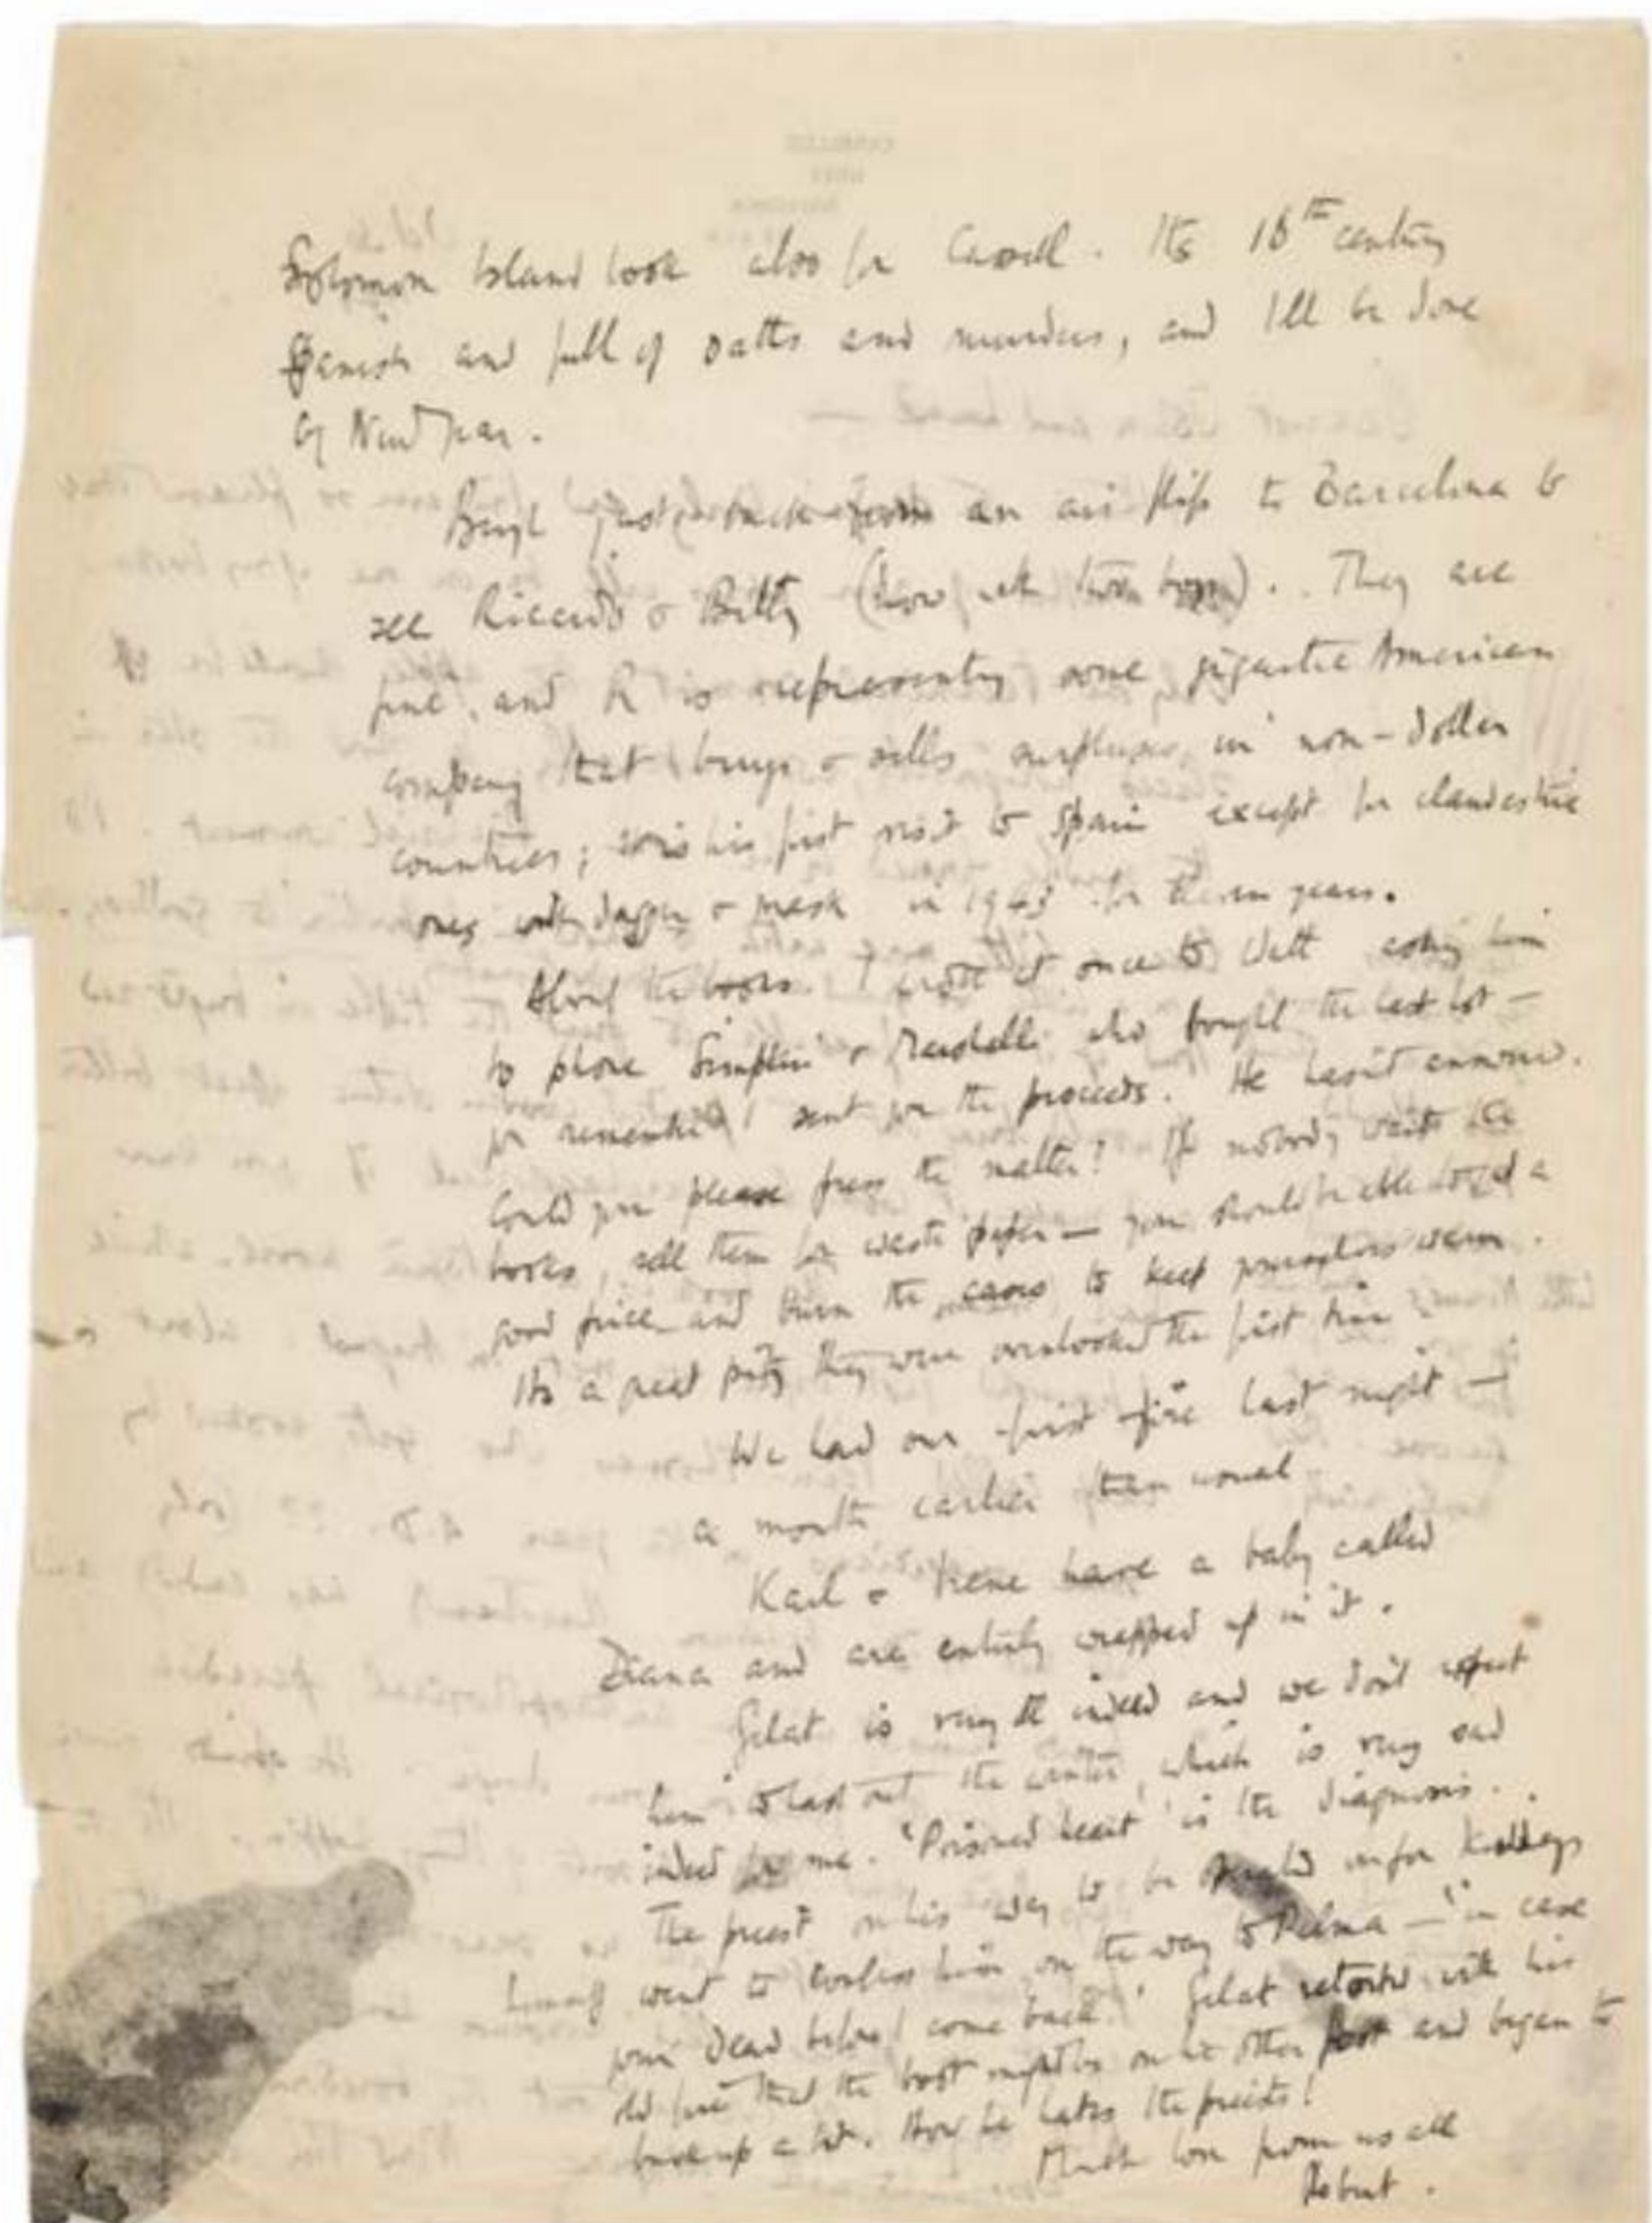 Solomon Island book also for Cassell. Its 16th century
Spanish and full of oaths and murders, and I'll be done
by New Year.
Beryl just back from an air flip to Barcelona to
see Riccardo & Betty (now with two boys). They are
fine, and R is representing some gigantic American
company that buys & sells surpluses in non-dollar
countries; his first visit to Spain except for clandestine
ones with dagger & mask in 1943 for eleven years.
About the books. I wrote at once to Watt asking him
to phone Simpkin & Marshall who bought the last lot —
you remember I sent you the proceeds. He hasn't answered.
Could you please press the matter? If nobody wants the
books, sell them for waste paper — you should be able to get a
good price and burn the cases to keep yourselves warm.
Its a great pity they were overlooked the first time.
We had our first fire last night —
a month earlier than usual.
Karl & Irene have a baby called
Diana and are entirely wrapped up in it.
Gelat is very ill indeed and we don't expect
him to last out the winter, which is very sad
indeed for me. 'Poisoned heart' is the diagnosis.
The priest on his way to be for kidneys
himself went to confess him on the way to Palma — 'in case
you're dead before I come back.' Gelat retorted with his
old fire that the boot might be on the other foot and began to
buck up a bit. How he hates the priests!
Much love from us all
Robert.